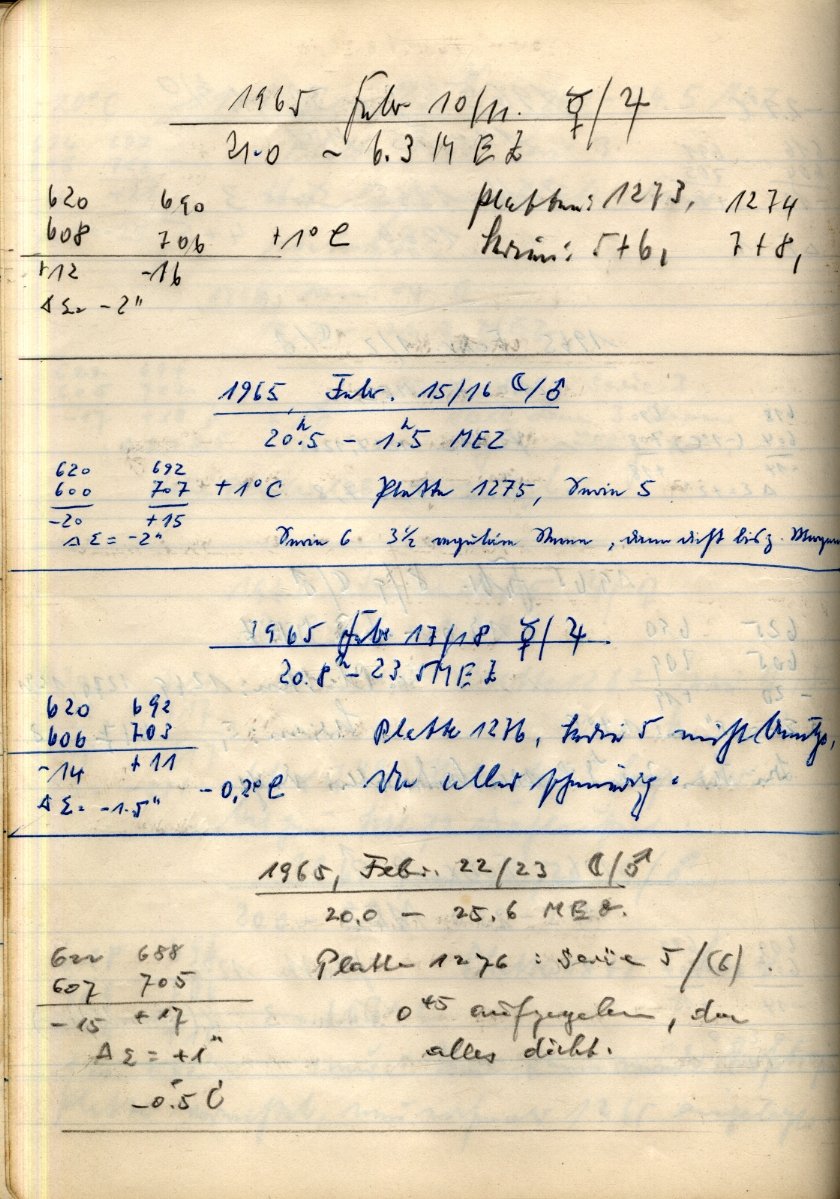 1965 Febr 10/11. ☿/♃
21.0 ~ 6.3 MEZ
620 690 Platten: 1273, 1274
608 706 +1°C Serien: 5+6, 7+8,
+12 -16
ΔΣ= -2"
1965, Febr. 15/16 ☾/♂
20.5 - 1.5 MEZ
620 692
600 707 +1°C Platte 1275, Serie 5.
-20 +15
ΔΣ = -2" Serie 6 3½ reguläre Sterne, dann dicht bis z. Morgen
1965 Febr 17/18 ☿/♃
20.8 - 23.5 MEZ
620 692
606 703 Platte 1276, Serie 5 nicht
-14 +11
ΔΣ= -1.5" -0,2°C alles
1965, Febr. 22/23 ☾/♂
20.0 - 25.6 MEZ.
622 688 Platte 1276 : Serie 5/(6).
607 705
-15 +17 0 45 aufgegeben, da
ΔΣ = +1" alles dicht.
-0.5 C